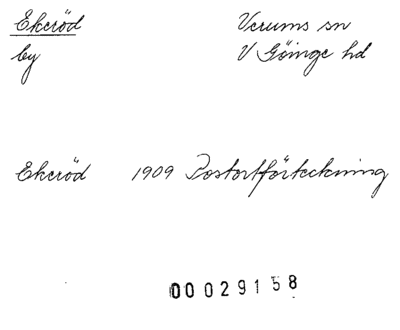 Ekeröd Verums sn
by V Göinge hd
Ekeröd 1909 Postortförteckning
00029158